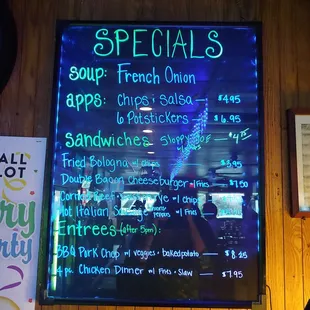 SPECIALS
Soup: French Onion
apps: Chips & Salsa — $4.95
6 Potstickers — $6.95
Sandwiches Sloppy Joe $4.75
Fried Bologna w/ chips $3.95
Double Bacon Cheeseburger w/ Fries $7.50
w/ chips
Hot Italian Sausage w/ Fries
Entrees (after 5pm):
BBQ Pork Chop w/ veggies & baked potato
4 pc. Chicken Dinner w/ Fries & Slaw — $7.95
ALL
LOT